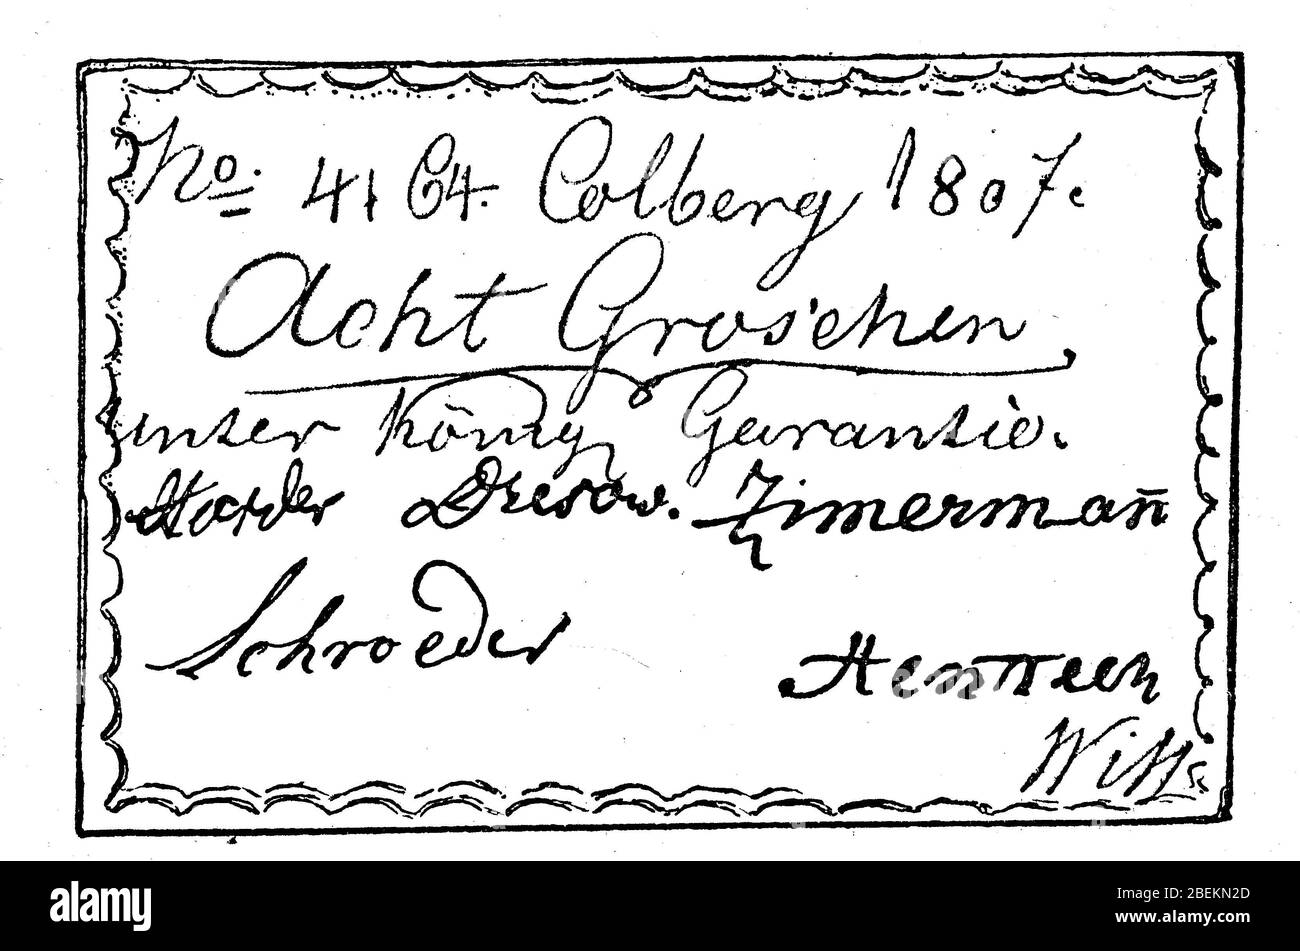 No. 4164. Colberg 1807.
Acht Groschen,
unter König Garantie.
Harder Dresow. Zimermañ
Schroeder
Hentsch
alamy
Image ID: 2BEKN2D
www.alamy.com